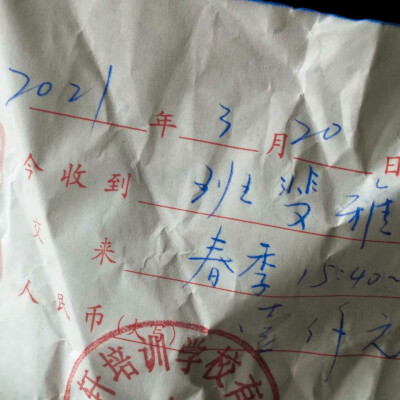 2021年3月20日
今收到 班斐雅
交来 春季 15:40~
人民币(大写) 壹仟元
轩培训学校有